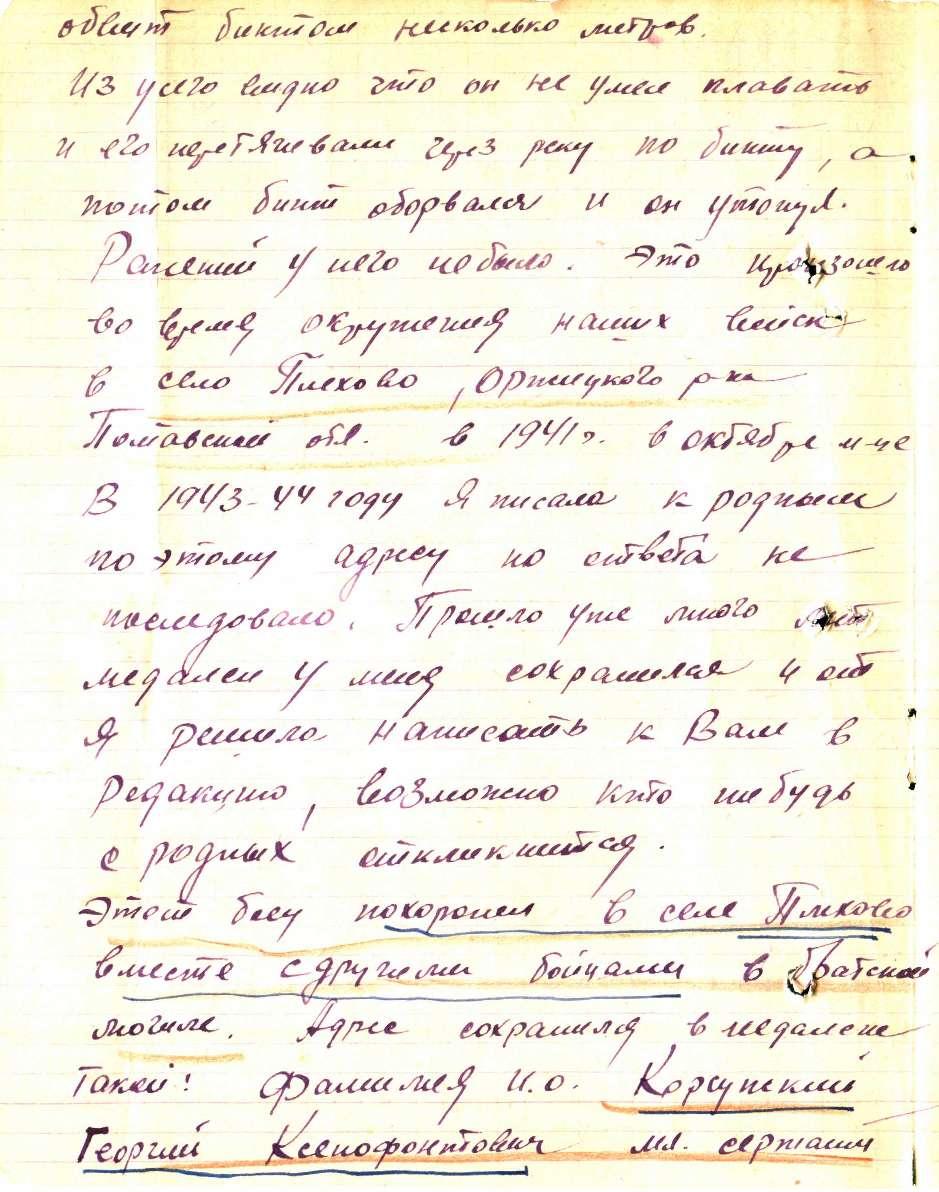 обвит бинтом несколько метров.
Из усего видно что он не умел плавать
и его перетягевали через реку по бинту, а
потом бинт оборвался и он утонул.
Ранений у него небыло. Это произошло
во время окружения наших войск
в село Плехово, Оржицкого р-на
Полтавской обл. в 1941г. в октябре м-це
В 1943-44 году я писала к родным
по этому адресу но ответа не
последовало. Прошло уже много лет
медалён у меня сохранился и от
я решила написать к Вам в
редакцию, возможно кто нибудь
с родных откликнится.
Этот боец похоронен в селе Плехово
вместе с другими бойцами в братской
могиле. Адрес сохранился в медалёне
такой! Фамилия и.о. Корсунский
Георгий Ксенофонтович мл. сержант